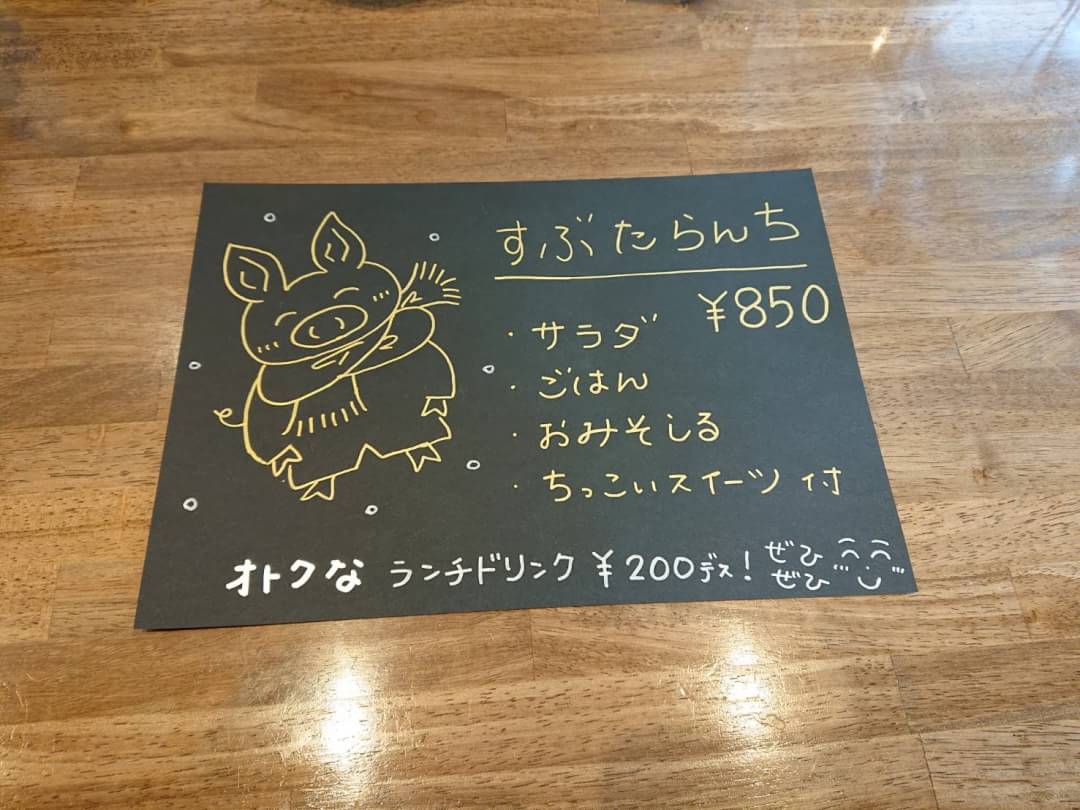 すぶたらんち
¥850
・サラダ
・ごはん
・おみそしる
・ちっこいスイーツ付
オトクな ランチドリンク ¥200デス! ぜひぜひ